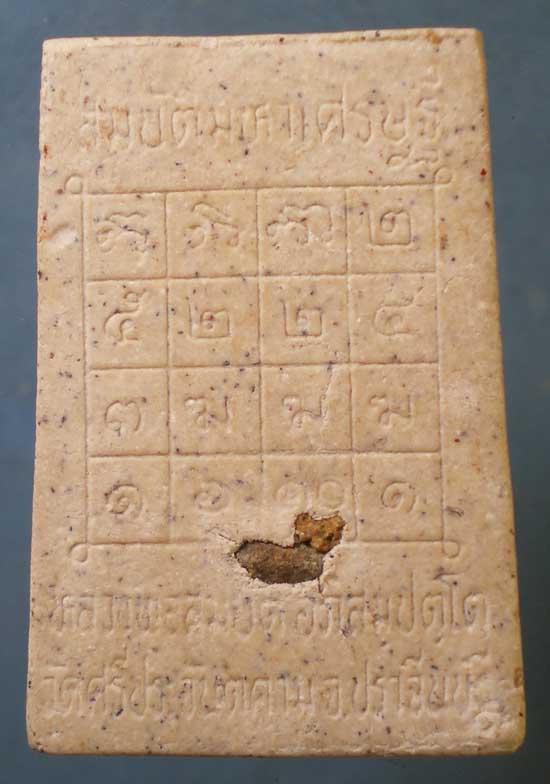 สมบัติมหาเศรษฐี
๒
๕ ๒ ๒ ๕
๓ ฆ ฆ ฆ
๑ ๖ ๑
หลวงพ่อสมบัติ อภิสมฺปตฺโต
วัดศรีประจันตคาม จ.ปราจีนบุรี